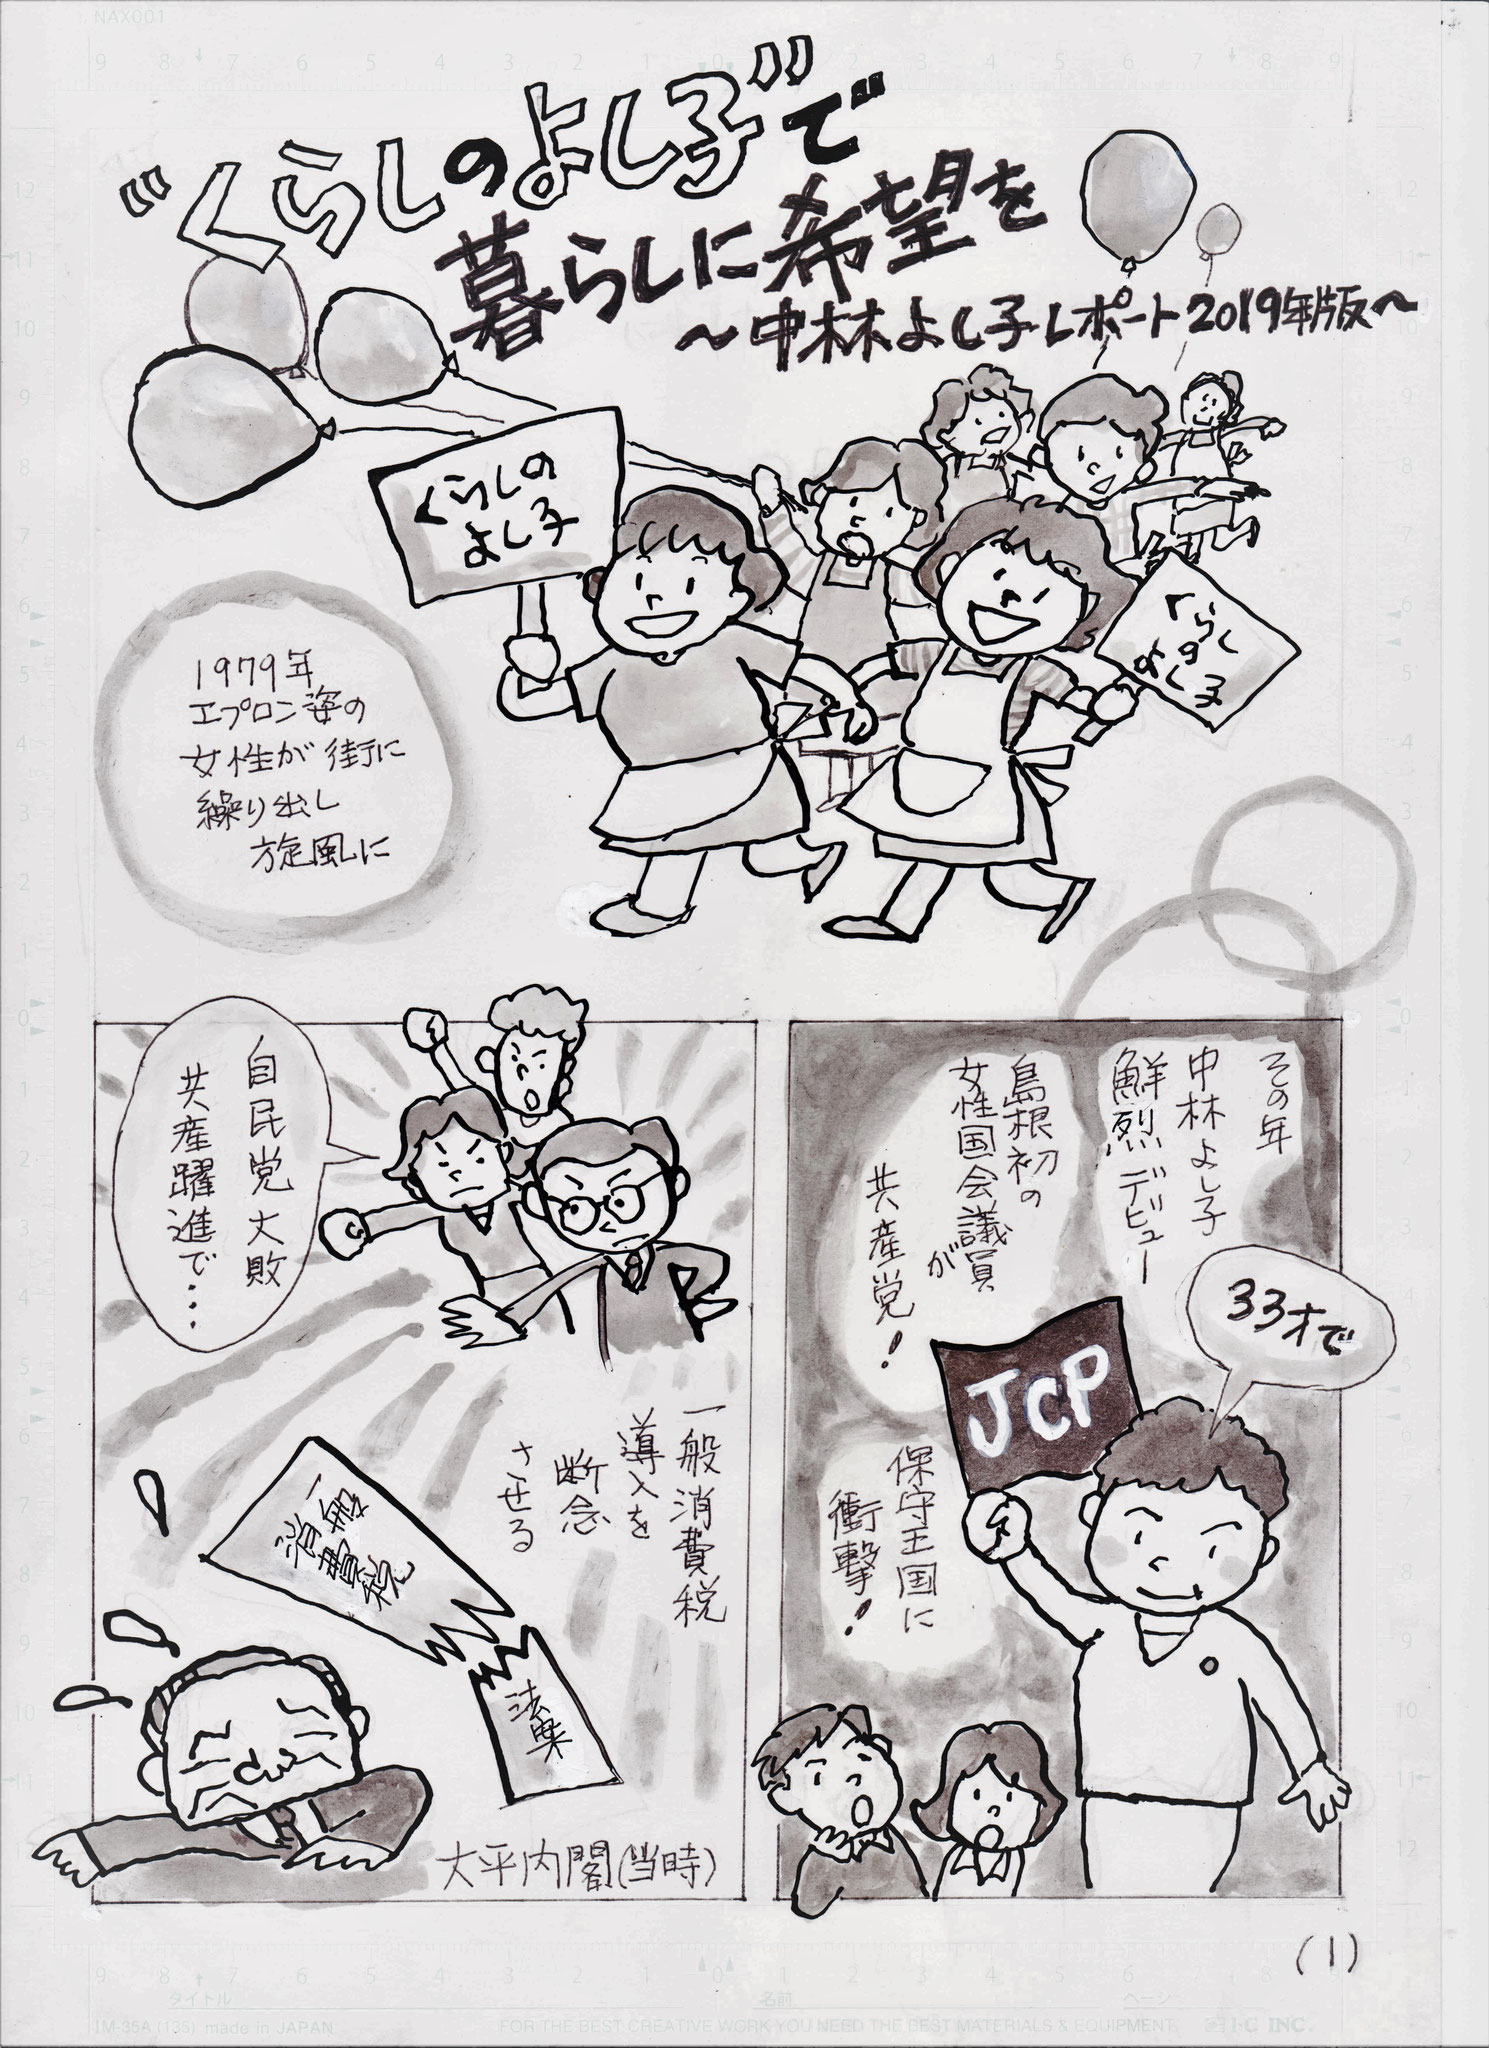 NAX001
"くらしのよし子"で
暮らしに希望を
～中林よし子レポート2019年版～
くらしの
よし子
くらし
の
よし子
1979年
エプロン姿の
女性が街に
繰り出し
旋風に
その年
中林よし子
鮮烈デビュー
島根初の
女性国会議員
が
共産党！
33才で
JCP
保守王国に
衝撃！
自民党大敗
共産躍進で・・・
一般消費税
導入を
断念
させる
一般
消費税
法案
大平内閣(当時)
(1)
タイトル
名前
ページ
IM-35A (135) made in JAPAN
FOR THE BEST CREATIVE WORK YOU NEED THE BEST MATERIALS & EQUIPMENT
I·C INC.